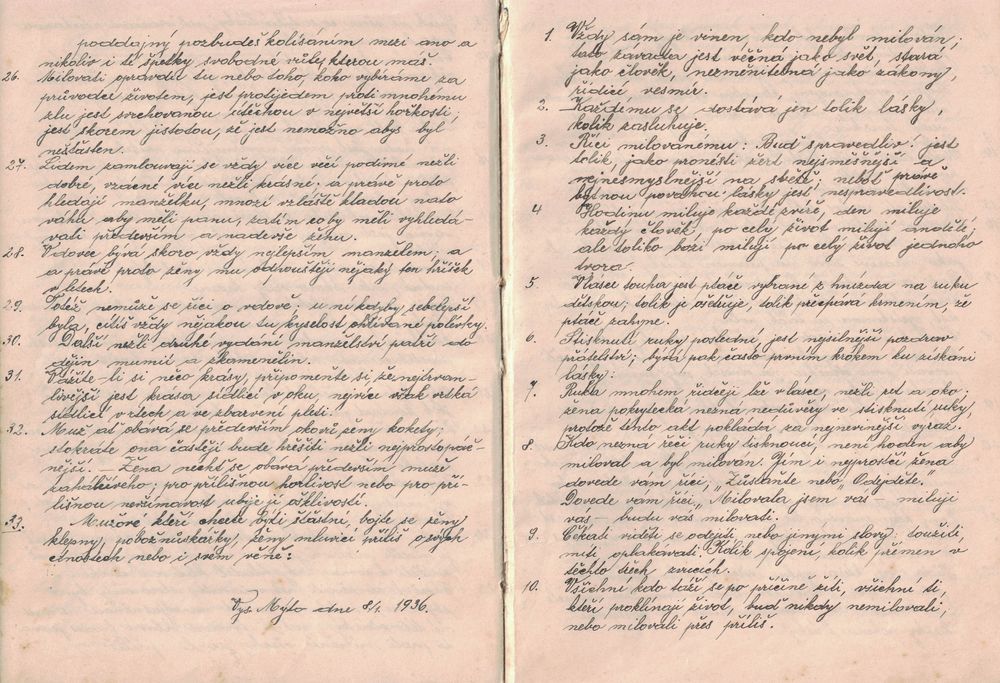 poddajný pozbudeš kolísáním mezi ano a
nikoliv i té špetky svobodné vůle, kterou máš.
26. Milovati opravdu tu nebo toho, koho vybíráme za
průvodce životem, jest protijedem proti mnohému
zlu jest svrchovanou útěchou v největší hořkosti;
jest skorem jistotou, že jest nemožno abys byl
nešťasten.
27. Lidem zamlouvají se vždy více věci podivné nežli
dobré, vzácné více nežli krásné; a právě proto
hledají manželku, mnozí zvláště kladou na to
váhu aby měli pannu, zatím co by měli vyhledá-
vati především a nadevše ženu.
28. Vdovec bývá skoro vždy nejlepším manželem; a
a právě proto ženy mu odpouštějí nějaký ten hříšek
v letech.
29. Totéž nemůže se říci o vdově: u ní kdyby sebelepší
byla, cítíš vždy nějakou tu kyselost ohřívané polívky.
30. Další nežli druhé vydání manželství patří do
dějin mumií a zkamenělin.
31. Vážíte-li si něco krásy, připomeňte si že nejtrvan-
livější jest krása sídlící v oku, nejvíce však vrtká
sídlící v rtech a ve zbarvení pleti.
32. Muž ať obává se především okovů ženy kokety;
stokráte ona častěji bude hřešiti nežli nejprostopáš-
nější. — Žena nechť se obává především muže
zahálčivého; pro přílišnou horlivost nebo pro pří-
lišnou nevšímavost ubije ji ošklivostí.
33. Mužové, kteří chcete býti šťastni, bojte se ženy
klepny, pobožnůstkářky, ženy mluvící příliš o svých
ctnostech nebo i svém věně:
Vys. Mýto dne 8/1. 1936.
1. Vždy sám je vinen, kdo nebyl milován;
tato závada jest věčná jako svět, stará
jako člověk, nezměnitelná jako zákony,
řídíce vesmír.
2. Každému se dostává jen tolik lásky,
kolik zasluhuje.
3. Říci milovanému: Buď spravedlivý! jest
tolik, jako pronésti žert nejsměšnější a
nejnesmyslnější na světě, neboť právě
bytnou povahou lásky jest nespravedlivost.
4 Hodinu miluje každé zvíře, den miluje
každý člověk, po celý život milují andělé,
ale toliko bozi milují po celý život jednoho
tvora.
5 Vlásce touha jest ptáče vybrané z hnízda na ruku
dětskou; tolik je ošetřuje, tolik přecpává krmením, že
ptáče zahyne.
6. Stisknutí ruky poslední, jest nejsilnější pozdrav
přátelství; bývá pak často prvním krokem ku získání
lásky:
7. Ruka mnohem řidčeji lže v lásce, nežli ret a oko;
žena pokrytecká nezná nedůvěry ve stisknutí ruky,
protože tento akt pokládá za nejnevinější výraz.
8. Kdo nezná řeči ruky tisknoucí, není hoden aby
miloval a byl milován. Jím i nejprostčí žena
dovede vám říci, „Zůstaňte nebo „Odejděte."
Dovede vám říci „Milovala jsem vás — miluji
vás — budu vás milovati.
9. Čekati viděti se odejíti nebo jinými slovy: toužiti,
míti oplakávati. Kolik spojení, kolik přeměn v
těchto třech zvucích.
10. Všichni kdo táží se po příčině žití, všichni ti,
kteří proklínají život, buď nikdy nemilovali,
nebo milovali přes příliš.